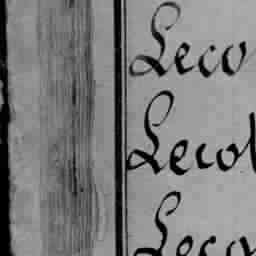 Leco
Lecol
Leco